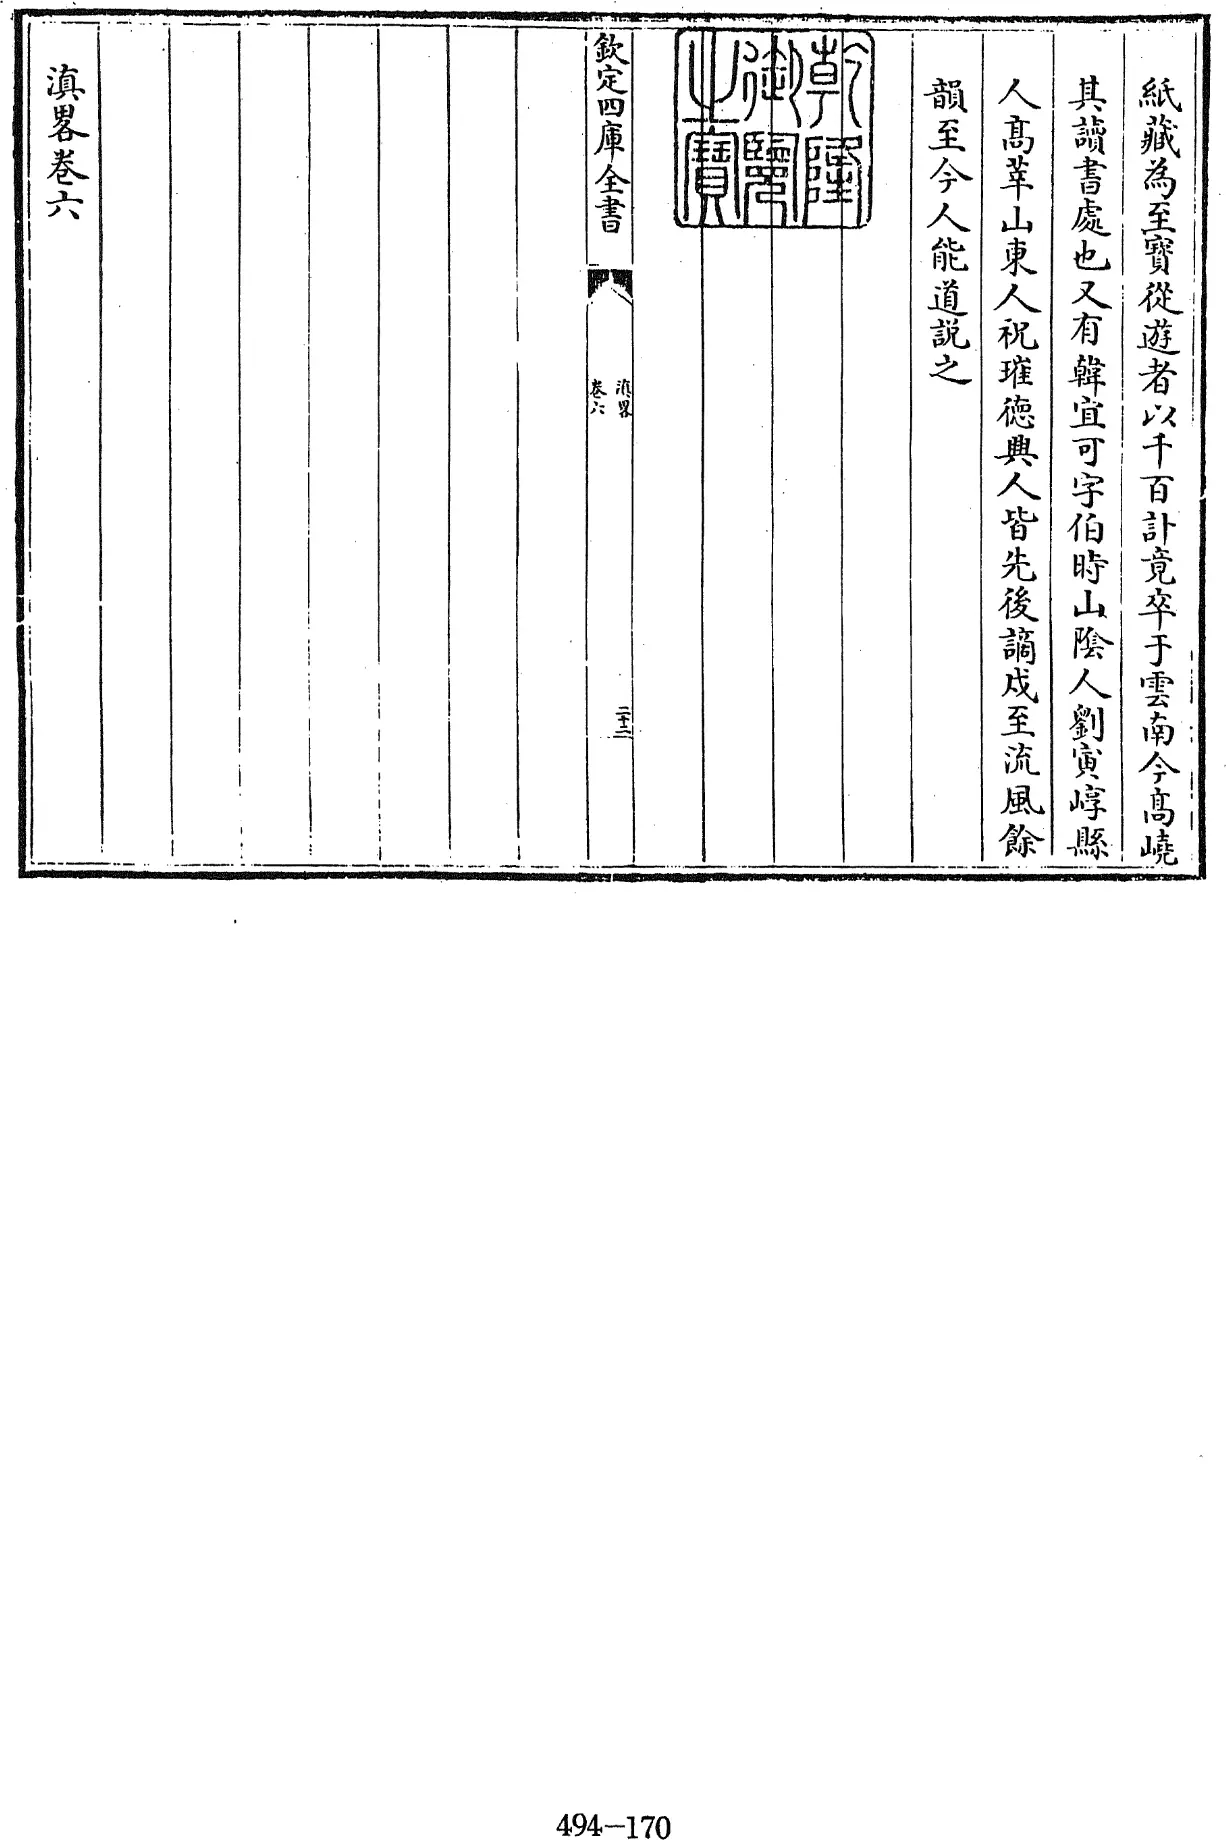 紙藏為至寶從遊者以千百計竟卒于雲南今髙嶢
其讀書處也又有韓宜可字伯時山陰人劉寅崞縣
人髙莘山東人祝璀德興人皆先後謫戍至流風餘
韻至今人能道説之
乾隆御覽之寶
欽定四庫全書
滇畧
卷六
二十二
滇畧卷六
494-170